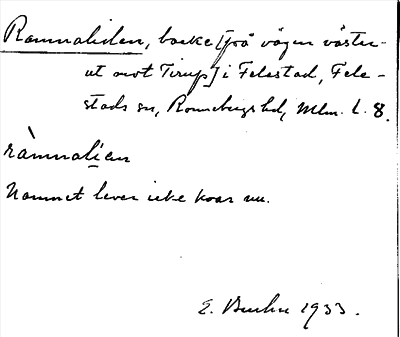 Ramnaliden, backe [på vägen väster-
ut mot Tirup] i Felestad, Fele-
stads sn, Rönnebergs hd, Mlm. L. 8.
ràmnalien
Namnet lever icke kvar nu.
E. 1933.